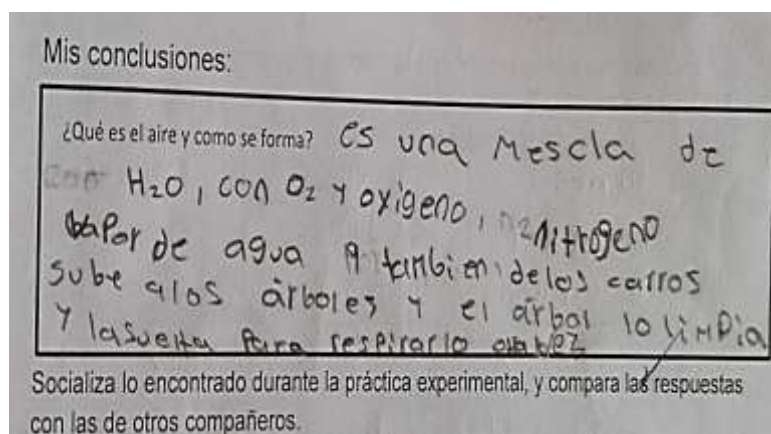 Mis conclusiones:
¿Qué es el aire y como se forma? es una mescla de
H₂O, con O₂ y oxigeno, nitrogeno
bapor de agua tambien de los carros
sube a los árboles y el árbol lo limpia
y lasuelta para respirarlo
Socializa lo encontrado durante la práctica experimental, y compara las respuestas
con las de otros compañeros.